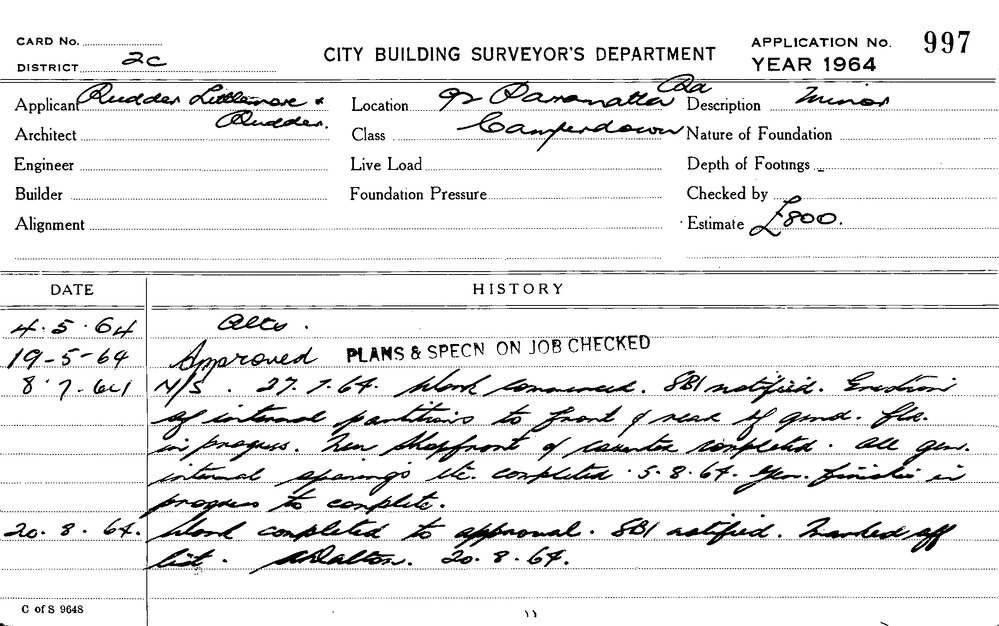 CARD No.
DISTRICT 2C
CITY BUILDING SURVEYOR'S DEPARTMENT
APPLICATION No. 997
YEAR 1964
Applicant Rudder Littlemore & Rudder.
Location 92 Parramatta Rd Camperdown
Description Minor
Architect
Class
Nature of Foundation
Engineer
Live Load
Depth of Footings
Builder
Foundation Pressure
Checked by
Alignment
Estimate £800.
DATE HISTORY
4.5.64 Alts.
19-5-64 Approved PLANS & SPECN ON JOB CHECKED
8.7.64 N/S. 27.7.64. Work commenced. SBI notified. Erection
of internal partitions to front & rear of grnd. flr.
in progress. New shopfront & counter completed. All gen.
internal openings etc. completed. 5.8.64. Gen. finishes in
progress to complete.
20.8.64. Work completed to approval. SBI notified. Marked off
list. Dalton. 20.8.64.
C of S 9648